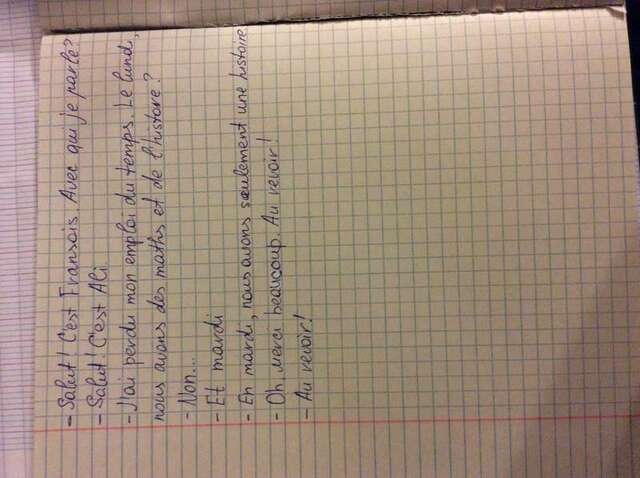 - Salut! C'est Fransois Avec qui je parle?
- Salut! C'est Ali
- J'ai perdu mon emploi du temps. Le lundi,
nous avons des maths et de l'histoire?
- Non...
- Et mardi
- En mardi, nous avons seulement une histoire
- Oh, merci beaucoup. Au revoir!
- Au revoir!